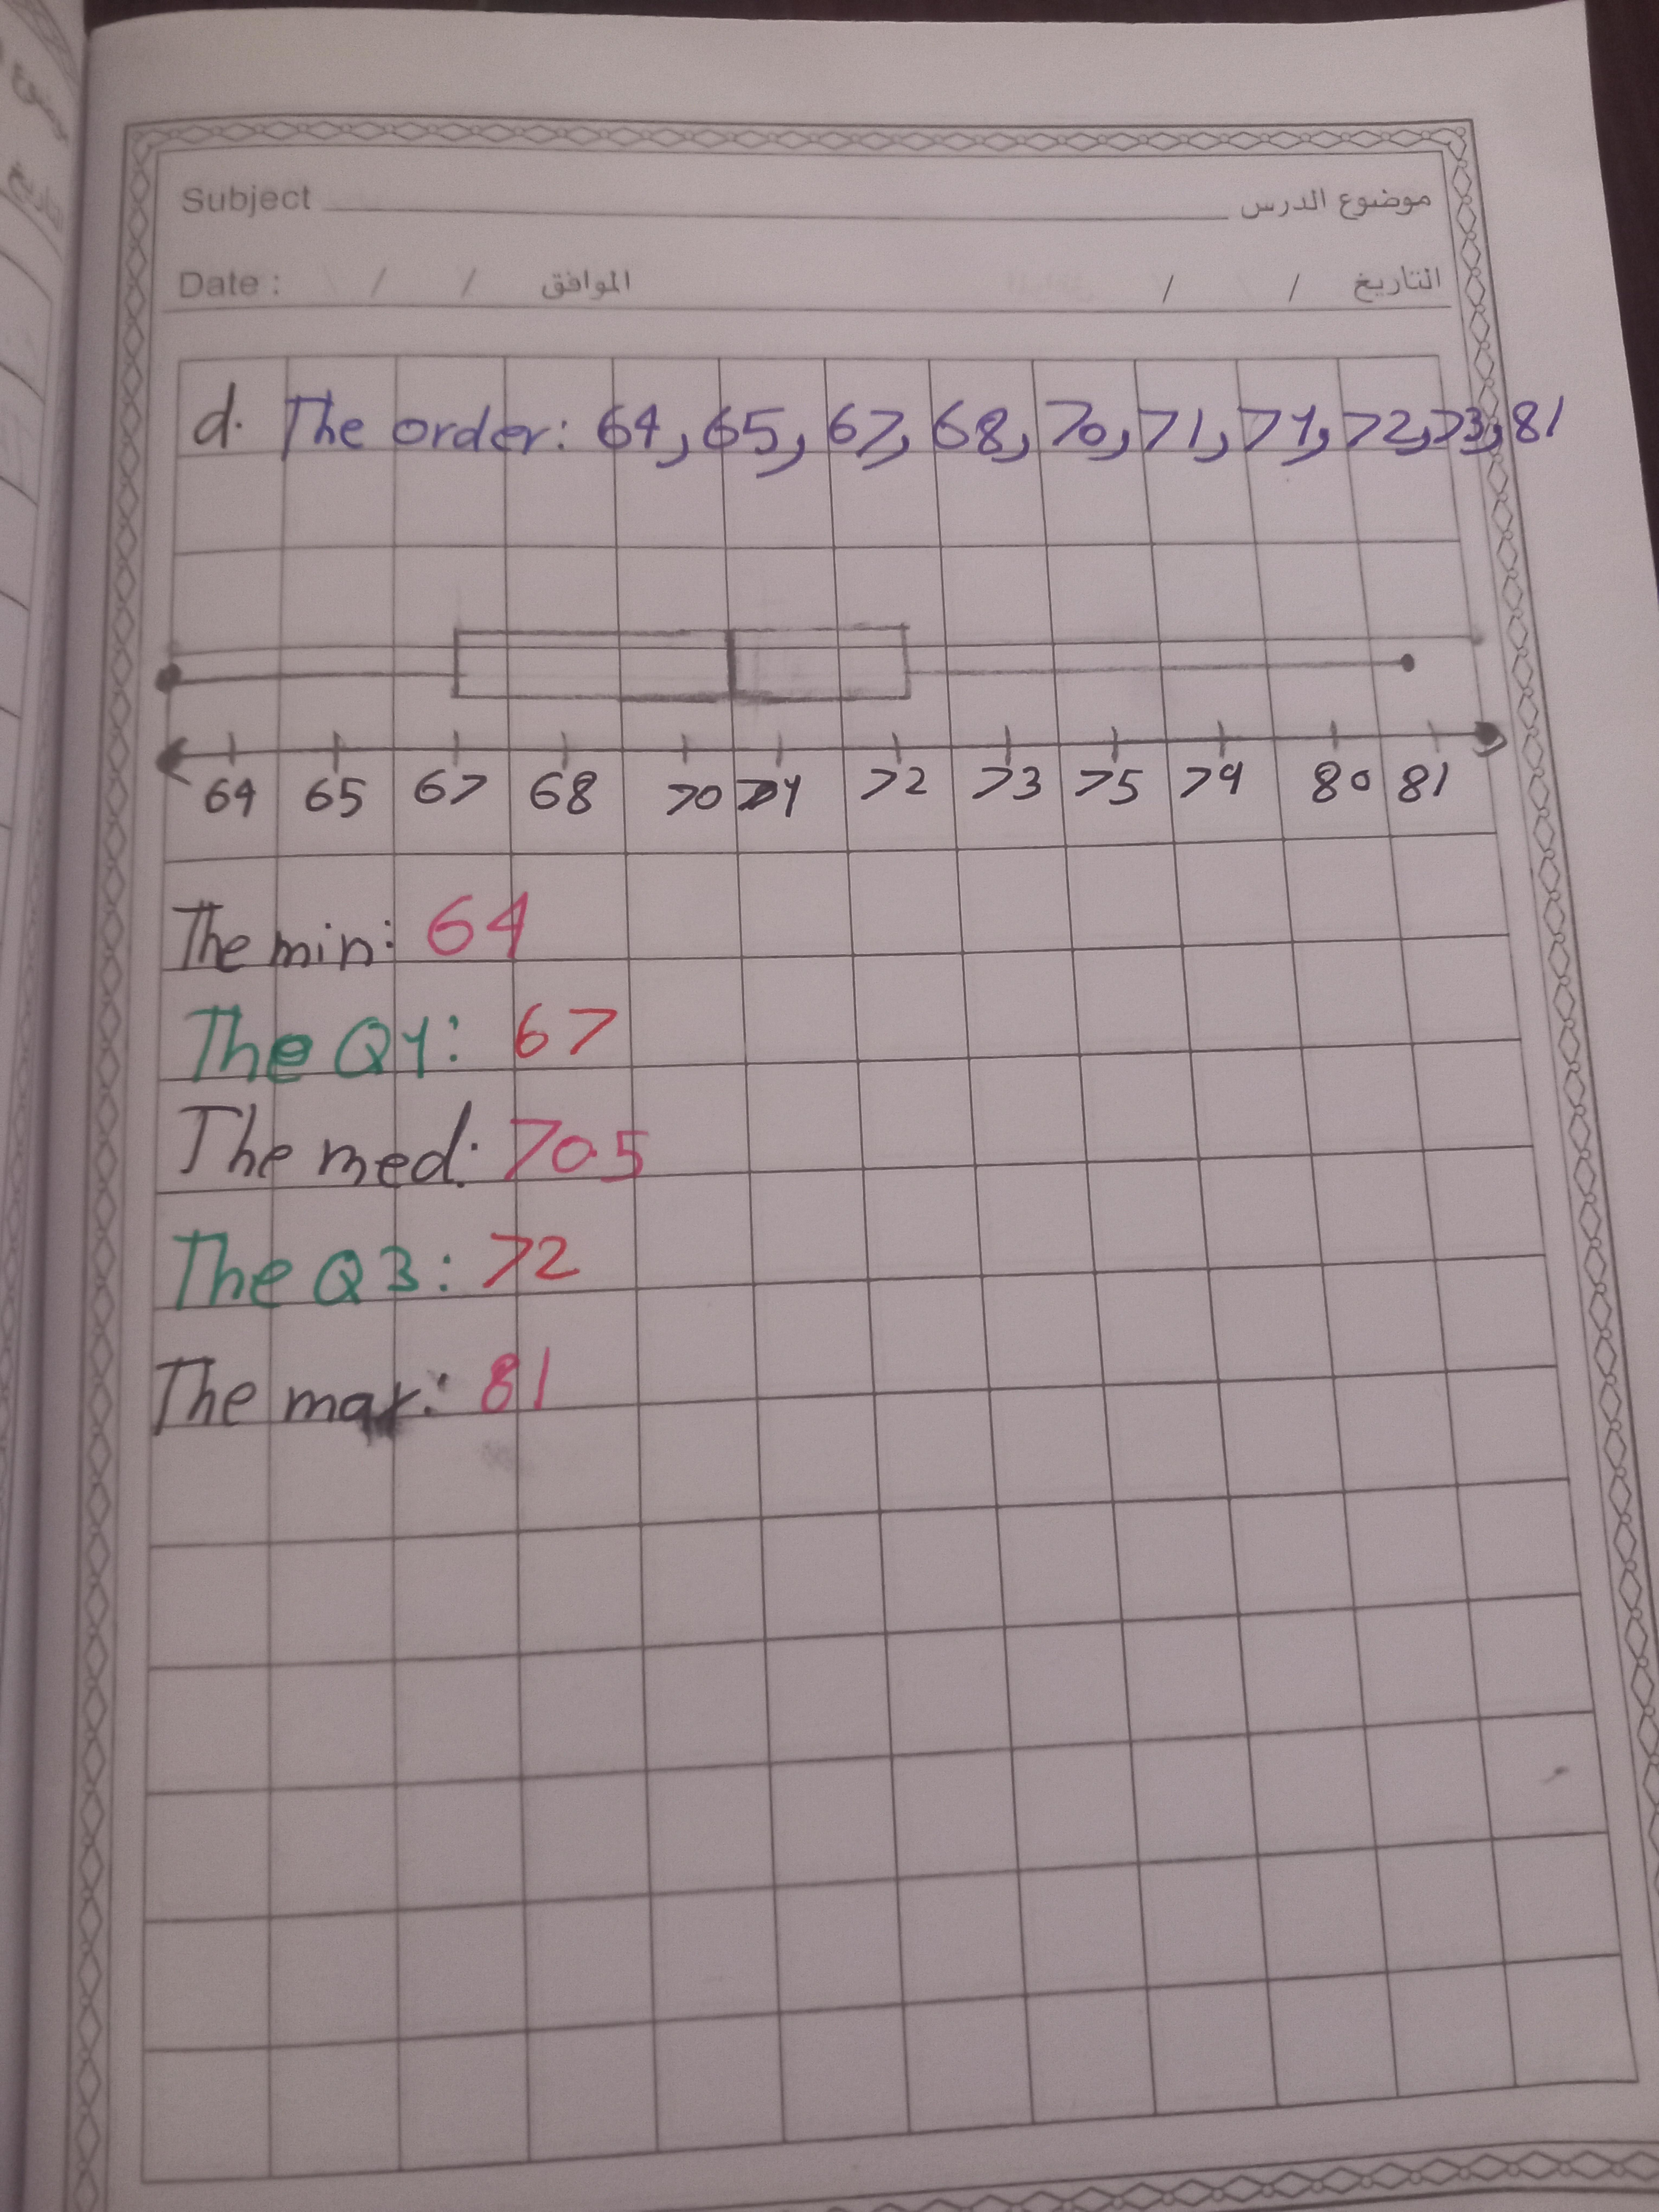 Subject موضوع الدرس
Date : / / الموافق / / التاريخ
d. The order: 64, 65, 67, 68, 70, 71, 71, 72, 73, 81
64 65 67 68 70 71 72 73 75 79 80 81
The min: 64
The Q1: 67
The med: 70.5
The Q3: 72
The max: 81